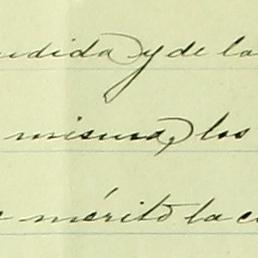 y de la
misma, los
mérito la